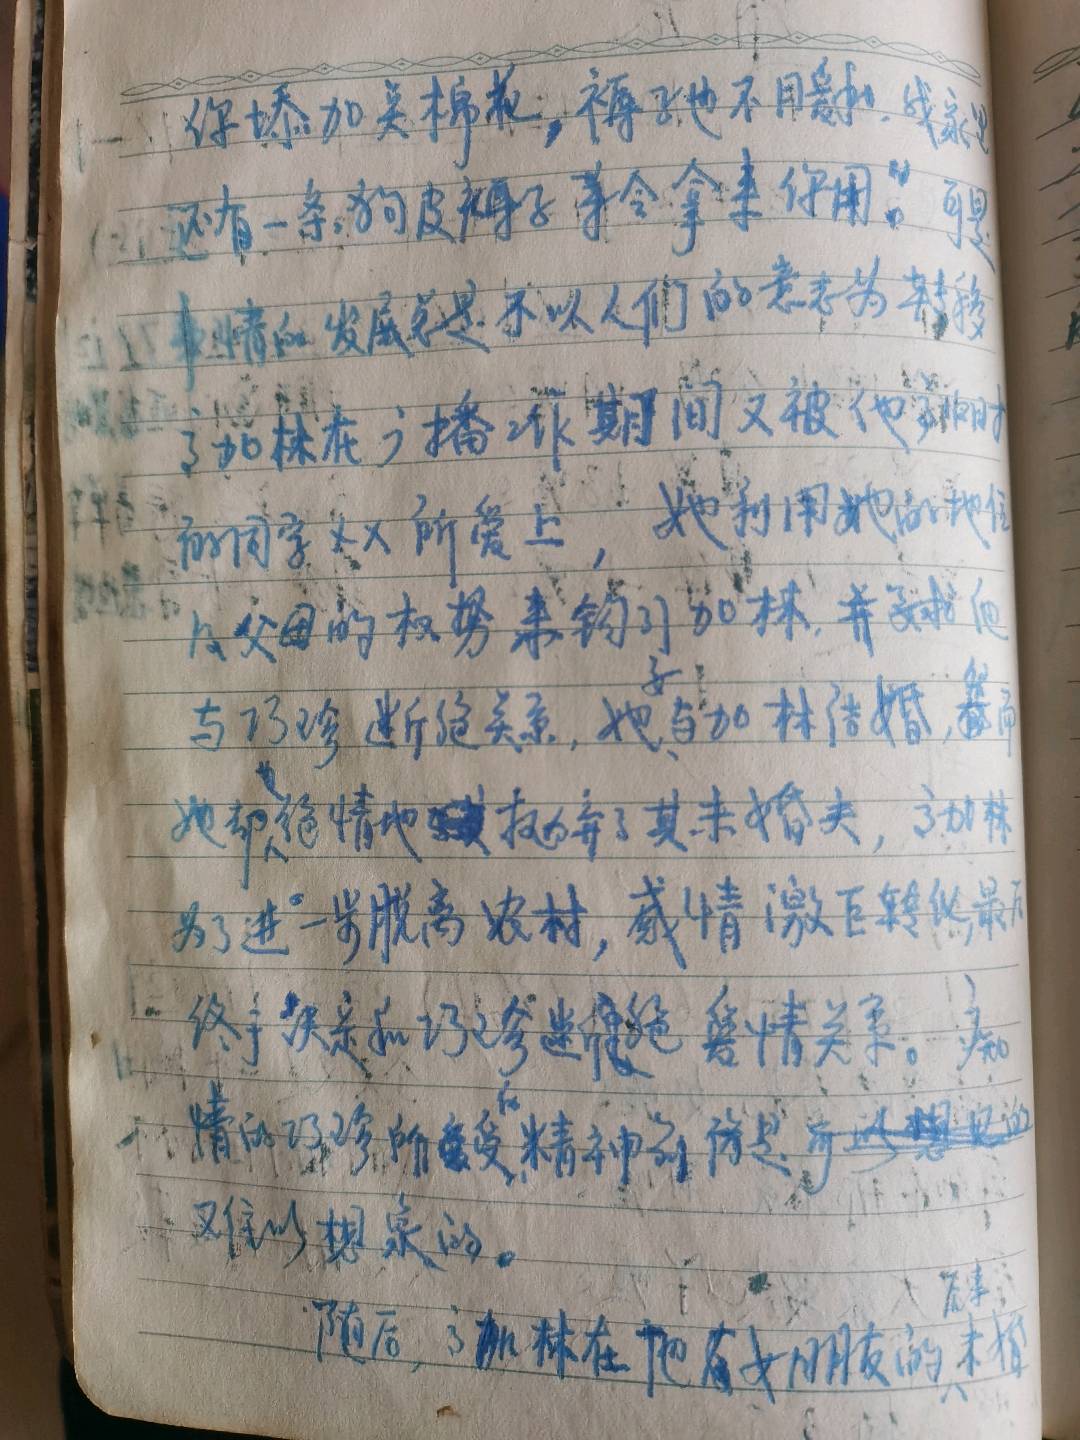 你添加关棉花，褥子也不用愁，我家里
还有一条狗皮褥子等会拿来你用。” 可是
事情的发展总是不以人们的意志为转移
了加林在广播工作期间又被他旧时
的同学××所爱上，她利用她的地位
及父母的权势来钩引加林，并要求他
与巧珍断绝关系，她好与加林结婚，继而
她却也绝情地抛弃了其未婚夫，了加林
为了进一步脱离农村，感情激巨转化，最后
终于决定和巧珍断绝爱情关系。痴
情的巧珍所受的精神创伤是
难以想象的。
随后，了加林在他女朋友的后来未婚